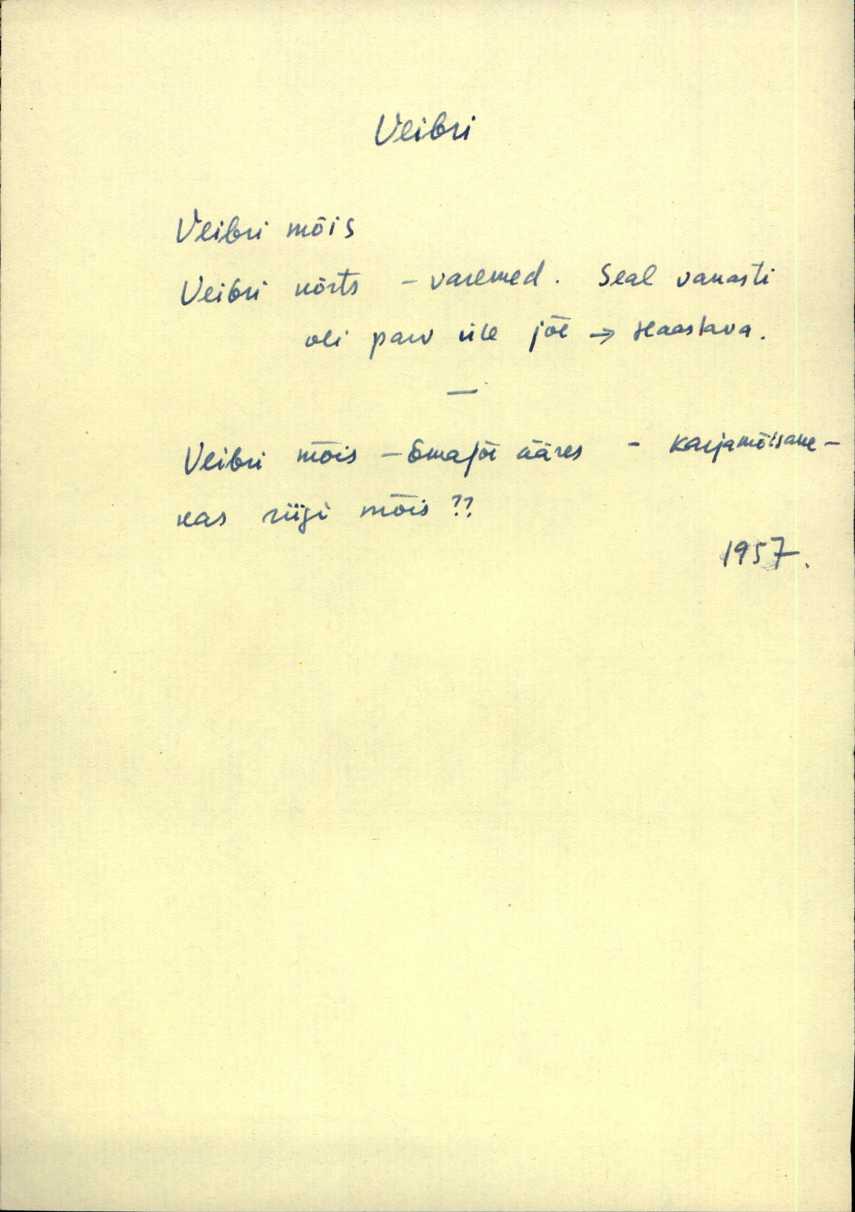 Veibri
Veibri mõis
Veibri kõrts - varemed. Seal vanasti
oli parv üle jõe → Haaslava.
—
Veibri mõis - Emajõe ääres - karjamõisane -
kas riigi mõis ??
1957.